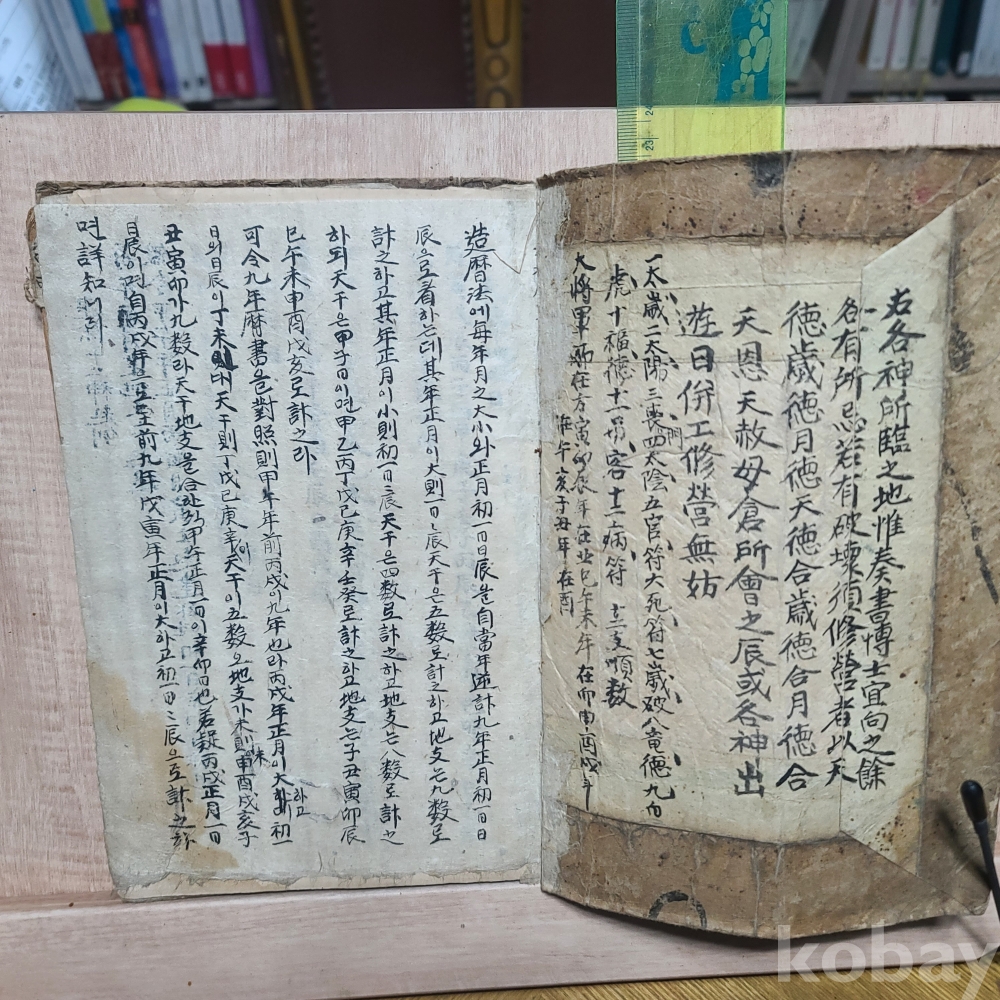 右各神所臨之地惟奏書博士宜向之餘
各有所忌若有破壞須修營者以天
德歲德月德天德合歲德合月德合
天恩天赦母倉所會之辰或各神出
遊日併工修營無妨
一太歲二太陽三喪門四太陰五官符六死符七歲破八竜德九白
虎十福德十一吊客十二病符 十二支順數
大將軍所在方寅卯辰年在北巳午未年在卯申酉戌年
在午亥子丑年在酉
造曆法에每年月之大小와正月初一日日辰을自當年逆計九年正月初一日日
辰으로看하는데其年正月이大則一日日辰天干은五数로計之하고地支는九数로
計之하고其年正月이小則初一日日辰天干은四数로計之하고地支는八数로計之
하되天干은甲子日이면甲乙丙丁戊己庚辛壬癸로計之하고地支는子丑寅卯辰
巳午未申酉戌亥로計之라
可令九年曆書을對照則甲午年前丙戌이九年也라丙戌年正月이大하고初一
日의日辰이丁未인대天干則丁戊己庚辛則天干이五数오地支가未則未申酉戌亥子
丑寅卯가九数라天干地支를合하야甲午正月一日이辛卯日也若疑丙戌正月一日
日辰이면自丙戌年으로至前九年戊寅年正月이大하고初一日日辰으로計之하
면詳知니라
23
24
kobay